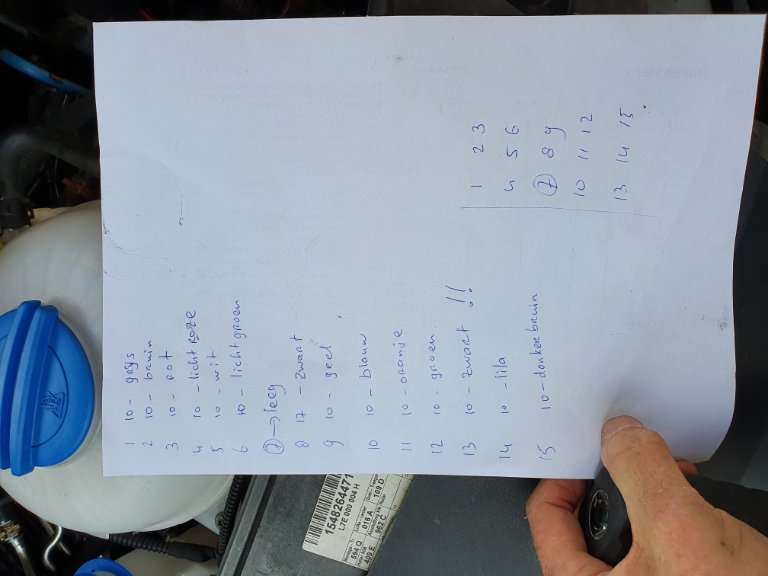 1 10 - grijs
2 10 - bruin
3 10 - rot
4 10 - licht roze
5 10 - wit
6 10 - lichtgroen
7 → leeg
8 17 - zwart
9 10 - geel
10 10 - blauw
11 10 - oranje
12 10 - groen
13 10 - zwart !!
14 10 - lila
15 10 - donkerbruin
1 2 3
4 5 6
7 8 9
10 11 12
13 14 15
1548264471
L7E 000 004 H
694 Q 016 A 109 D
409 E 962 C